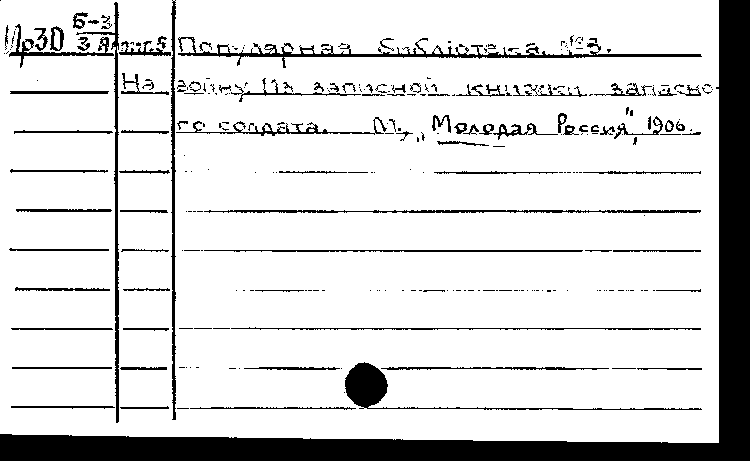 Пр3D Б-3 Популярная библіотека. №3.
На войну. Из записной книжки запасно-
го солдата. М., „Молодая Россия", 1906.